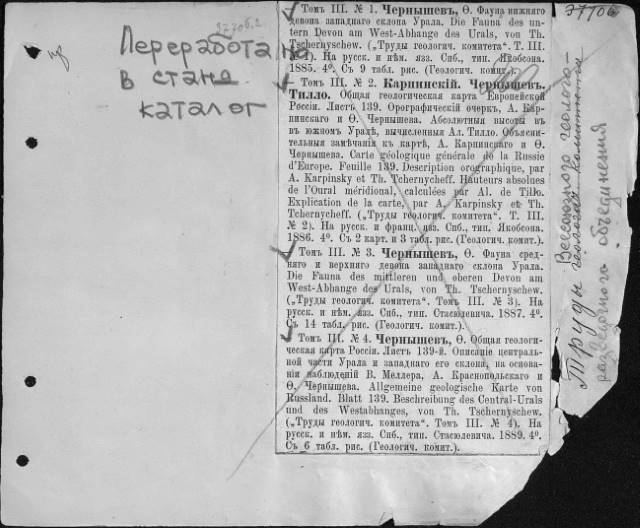 37706
Переработано
в станд.
каталог
Томъ III. № 1. Чернышевъ, Ѳ. Фауна нижняго
девона западнаго склона Урала. Die Fauna des un-
tern Devon am West-Abhange des Urals, von Th.
Tschernyschew. („Труды геологич. комитета“. Т. III.
№ 1). На русск. и нѣм. язз. Спб., тип. Якобсона.
1885. 4°. Съ 9 табл. рис. (Геологич. комит.).
Томъ III. № 2. Карпинскій. Чернышевъ.
Тилло. Общая геологическая карта Европейской
Россіи. Листъ 139. Орографическій очеркъ, А. Кар-
пинскаго и Ѳ. Чернышева. Абсолютныя высоты въ
въ южномъ Уралѣ, вычисленныя Ал. Тилло. Объясни-
тельныя замѣчанія къ картѣ, А. Карпинскаго и Ѳ.
Чернышева. Carte géologique générale de la Russie
d'Europe. Feuille 139. Description orographique, par
A. Karpinsky et Th. Tchernycheff. Hauteurs absolues
de l'Oural méridional, calculées par Al. de Tillo.
Explication de la carte, par A. Karpinsky et Th.
Tchernycheff. („Труды геологич. комитета“. Т. III.
№ 2). На русск. и франц. язз. Спб., тип. Якобсона.
1886. 4°. Съ 2 карт. и 3 табл. рис. (Геологич. комит.).
Томъ III. № 3. Чернышевъ, Ѳ. Фауна сред-
няго и верхняго девона западнаго склона Урала.
Die Fauna des mittleren und oberen Devon am
West-Abhange des Urals, von Th. Tschernyschew.
(„Труды геологич. комитета“. Томъ III. № 3). На
русск. и нѣм. язз. Спб., тип. Стасюлевича. 1887. 4°.
Съ 14 табл. рис. (Геологич. комит.).
Томъ III. № 4. Чернышевъ, Ѳ. Общая геологи-
ческая карта Россіи. Листъ 139-й. Описаніе централь-
ной части Урала и западнаго его склона, на основа-
ніи наблюденій В. Меллера, А. Краснопольскаго и
Ѳ. Чернышева. Allgemeine geologische Karte von
Russland. Blatt 139. Beschreibung des Central-Urals
und des Westabhanges, von Th. Tschernyschew.
(„Труды геологич. комитета“. Томъ III. № 4). На
русск. и нѣм. язз. Спб., тип. Стасюлевича. 1889. 4°.
Съ 6 табл. рис. (Геологич. комит.).
Труды Всесоюзного геолого-
разведочного объединения